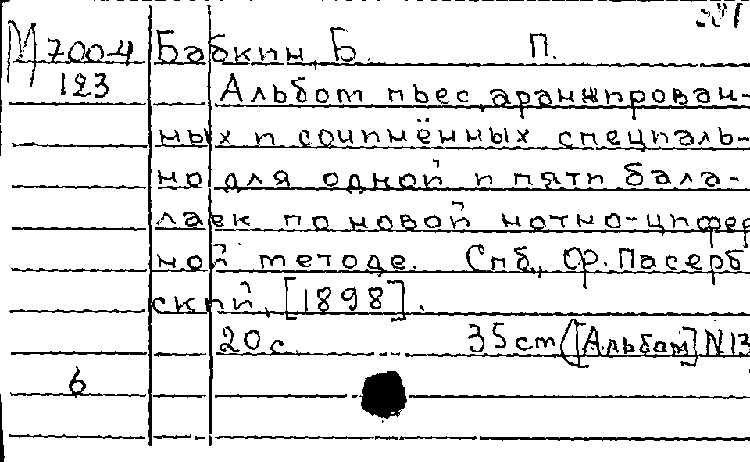 М 700-4 Бабкин, Б. П.
123 Альбом пьес, аранжирован-
ных и сочинённых специаль-
но для одной и пяти бала-
лаек по новой нотно-цифер
ной методе. Спб., Ф. Пасерб
ский, [1898].
20 с. 35 см ([Альбом] N 13
6